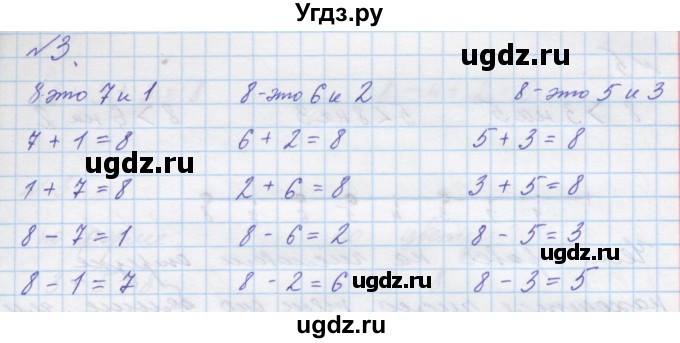 Угдз.ру
№3.
ugdz.ru
8-это 7 и 1 8-это 6 и 2 8-это 5 и 3
7+1=8 6+2=8 5+3=8
ugdz.ru ugdz.ru
1+7=8 2+6=8 3+5=8
ugdz.ru
8-7=1 8-6=2 8-5=3
ugdz.ru ugdz.ru
8-1=7 8-2=6 8-3=5
ugdz.ru